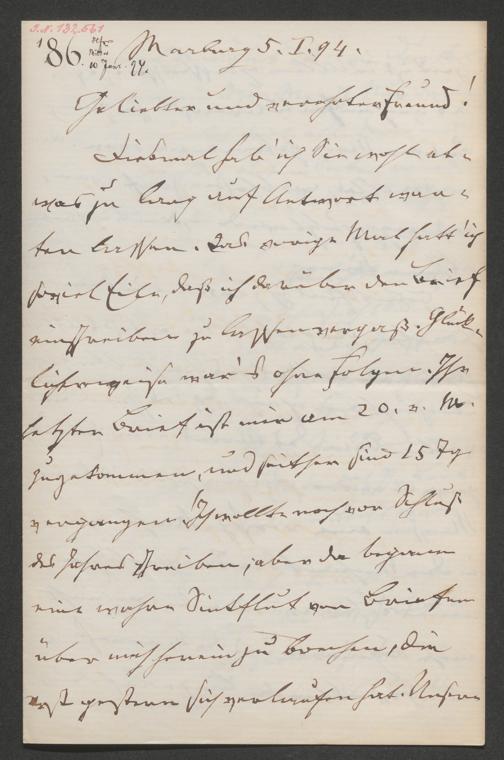 J.N. 132.661
186.
10 Jän. 94.
Marburg 5. I. 94.
Geliebter und verehrter Freund!
Diesmal hab' ich Sie wohl et-
was zu lang auf Antwort war-
ten lassen. Das vorige Mal hatt' ich
soviel Eile, daß ich darüber den Brief
einschreiben zu lassen vergaß. Glück-
licherweise war's ohne Folgen. Ihr
letzter Brief ist mir am 20. v. M.
zugekommen, und seither sind 15 Tg
vergangen! Ich wollte noch vor Schluß
des Jahres schreiben, aber da begann
eine wahre Sintflut von Briefen
über mich herein zu brechen, die
erst gestern sich verlaufen hat. Unsere